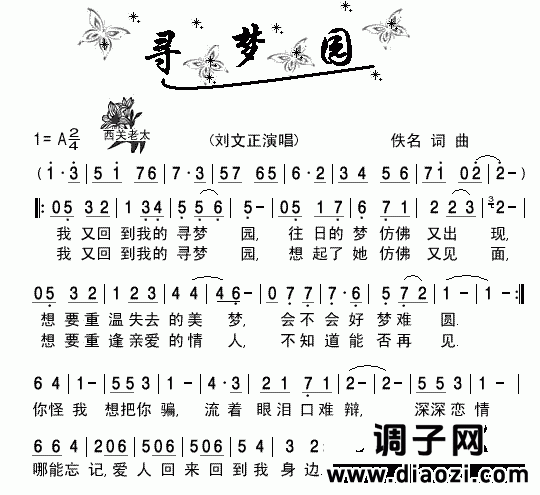 寻梦园
西关老太
1=A 2/4 (刘文正演唱) 佚名 词 曲
(1·3 | 51 76 | 7·3 | 57 5 | 2·3 | 24 56 | 71 02 | 2-)
‖: 05 32 | 1 34 | 55 6 | 5- | 05 17 | 6 71 | 22 3 | 3 2- |
我 又回 到我的 寻梦 园, 往 日的 梦 仿佛 又出 现,
我 又回 到我的 寻梦 园, 想 起了 她 仿佛 又见 面,
05 32 | 12 3 | 44 | 46- | 07 7 | 7·6 | 57 2 | 1- | 1- :‖
想 要重 温失去 的美 梦, 会不 会好 梦难 圆.
想 要重 逢亲爱 的情 人, 不知 道能 否再 见.
64 | 1- | 55 3 | 5- | 4·3 | 21 71 | 2- | 2- | 55 3 | 51 |
你怪 我 想把你 骗, 流着 眼泪口难 辩, 深深恋 情
66 4 | 206 | 506 | 506 | 54 | 32
哪能忘 记,爱 人回 来回 到我 身边.
调子网
www.diaozi.com